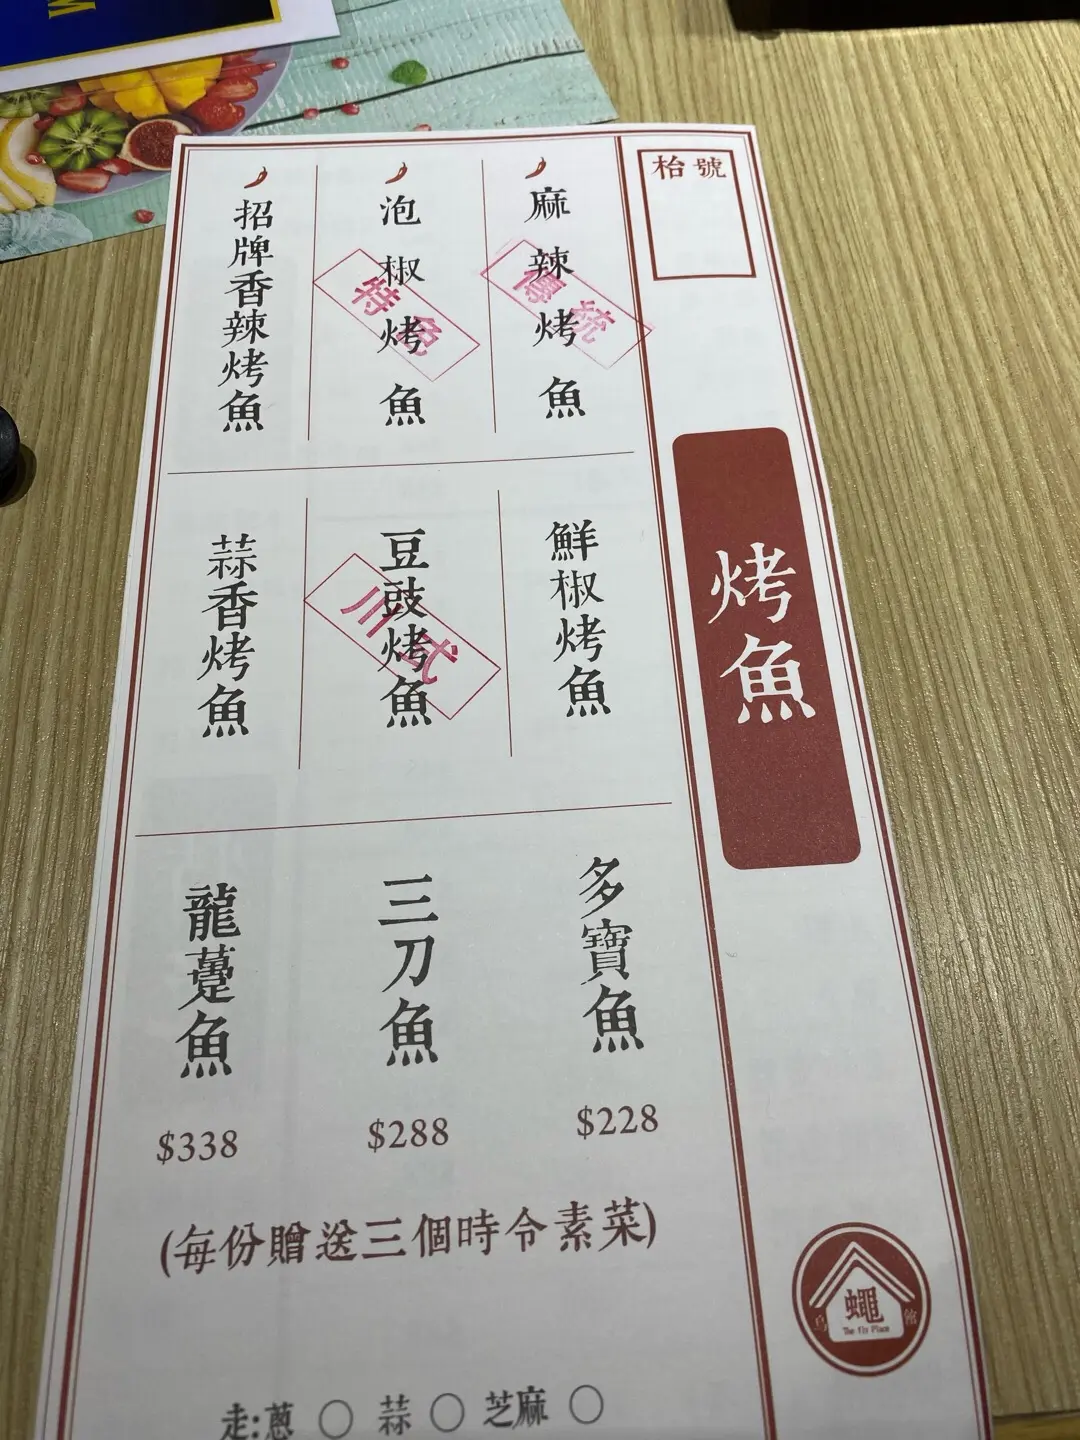 枱號
烤魚
麻辣烤魚
傳統
泡椒烤魚
特色
招牌香辣烤魚
鮮椒烤魚
豆豉烤魚
川式
蒜香烤魚
多寶魚
$228
三刀魚
$288
龍躉魚
$338
(每份贈送三個時令素菜)
走:蔥 ○ 蒜 ○ 芝麻 ○
烏
蠅
館
The Fly Place